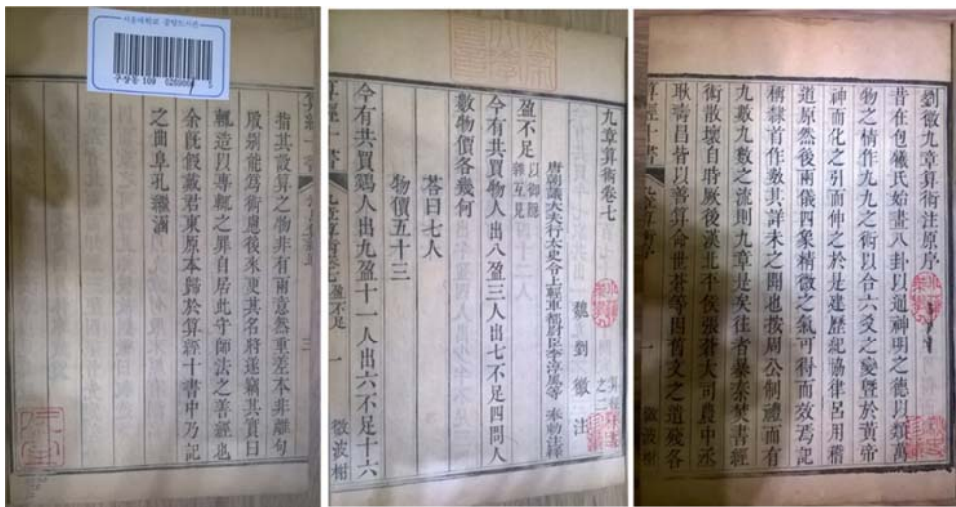 서울대학교 중앙도서관
구장동 109
指其設算之物非有兩意然重差本非離句
股別能為術應後來更其名將遂竊其實曰
輒造以專輒之罪自居此守師法之善經也
余既假戴君東原本歸於算經十書中乃記
之曲阜孔繼涵
九章算術卷七 算經之二
魏 劉 徽 注
唐朝議大夫行太史令上輕車都尉臣李淳風等 奉勅注釋
盈不足 以御隱雜互見
今有共買物人出八盈三人出七不足四問人
數物價各幾何
荅曰七人
物價五十三
今有共買雞人出九盈十一人出六不足十六
算經十書 九章算術卷七 盈不足 一 微波榭
劉徽九章算術注原序
昔在包犧氏始畫八卦以通神明之德以類萬
物之情作九九之術以合六爻之變曁於黃帝
神而化之引而伸之於是建歷紀協律呂用稽
道原然後兩儀四象精微之氣可得而效焉記
稱隸首作數其詳未之聞也按周公制禮而有
九數九數之流則九章是矣往者暴秦焚書經
術散壞自時厥後漢北平侯張蒼大司農中丞
耿壽昌皆以善算命世蒼等因舊文之遺殘各
算經十書 九章算術序 一 微波榭